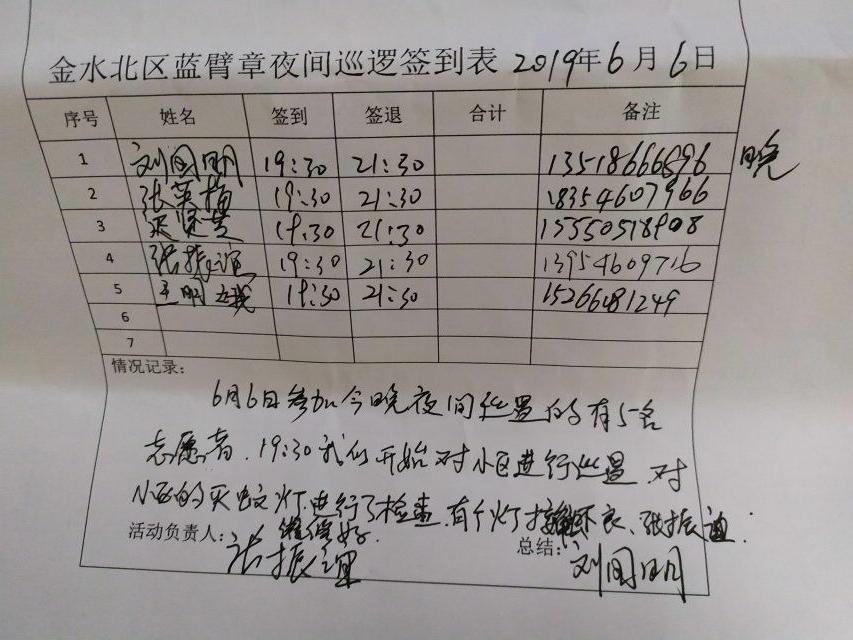 金水北区蓝臂章夜间巡逻签到表 2019年6月6日
序号 姓名 签到 签退 合计 备注
1 刘国明 19:30 21:30 13518666696 晚
2 张英梅 19:30 21:30 18354607966
3 19:30 21:30 15550518908
4 张振谊 19:30 21:30 13954609716
5 王明娥 19:30 21:30 15266481249
6
7
情况记录:
6月6日参加今晚夜间巡逻的有5名
志愿者.19:30我们开始对小区进行巡逻.对
小区的灭蚊灯.进行了检查.有个灯接触不良、张振谊
活动负责人: 张振谊 好. 总结: 刘国明